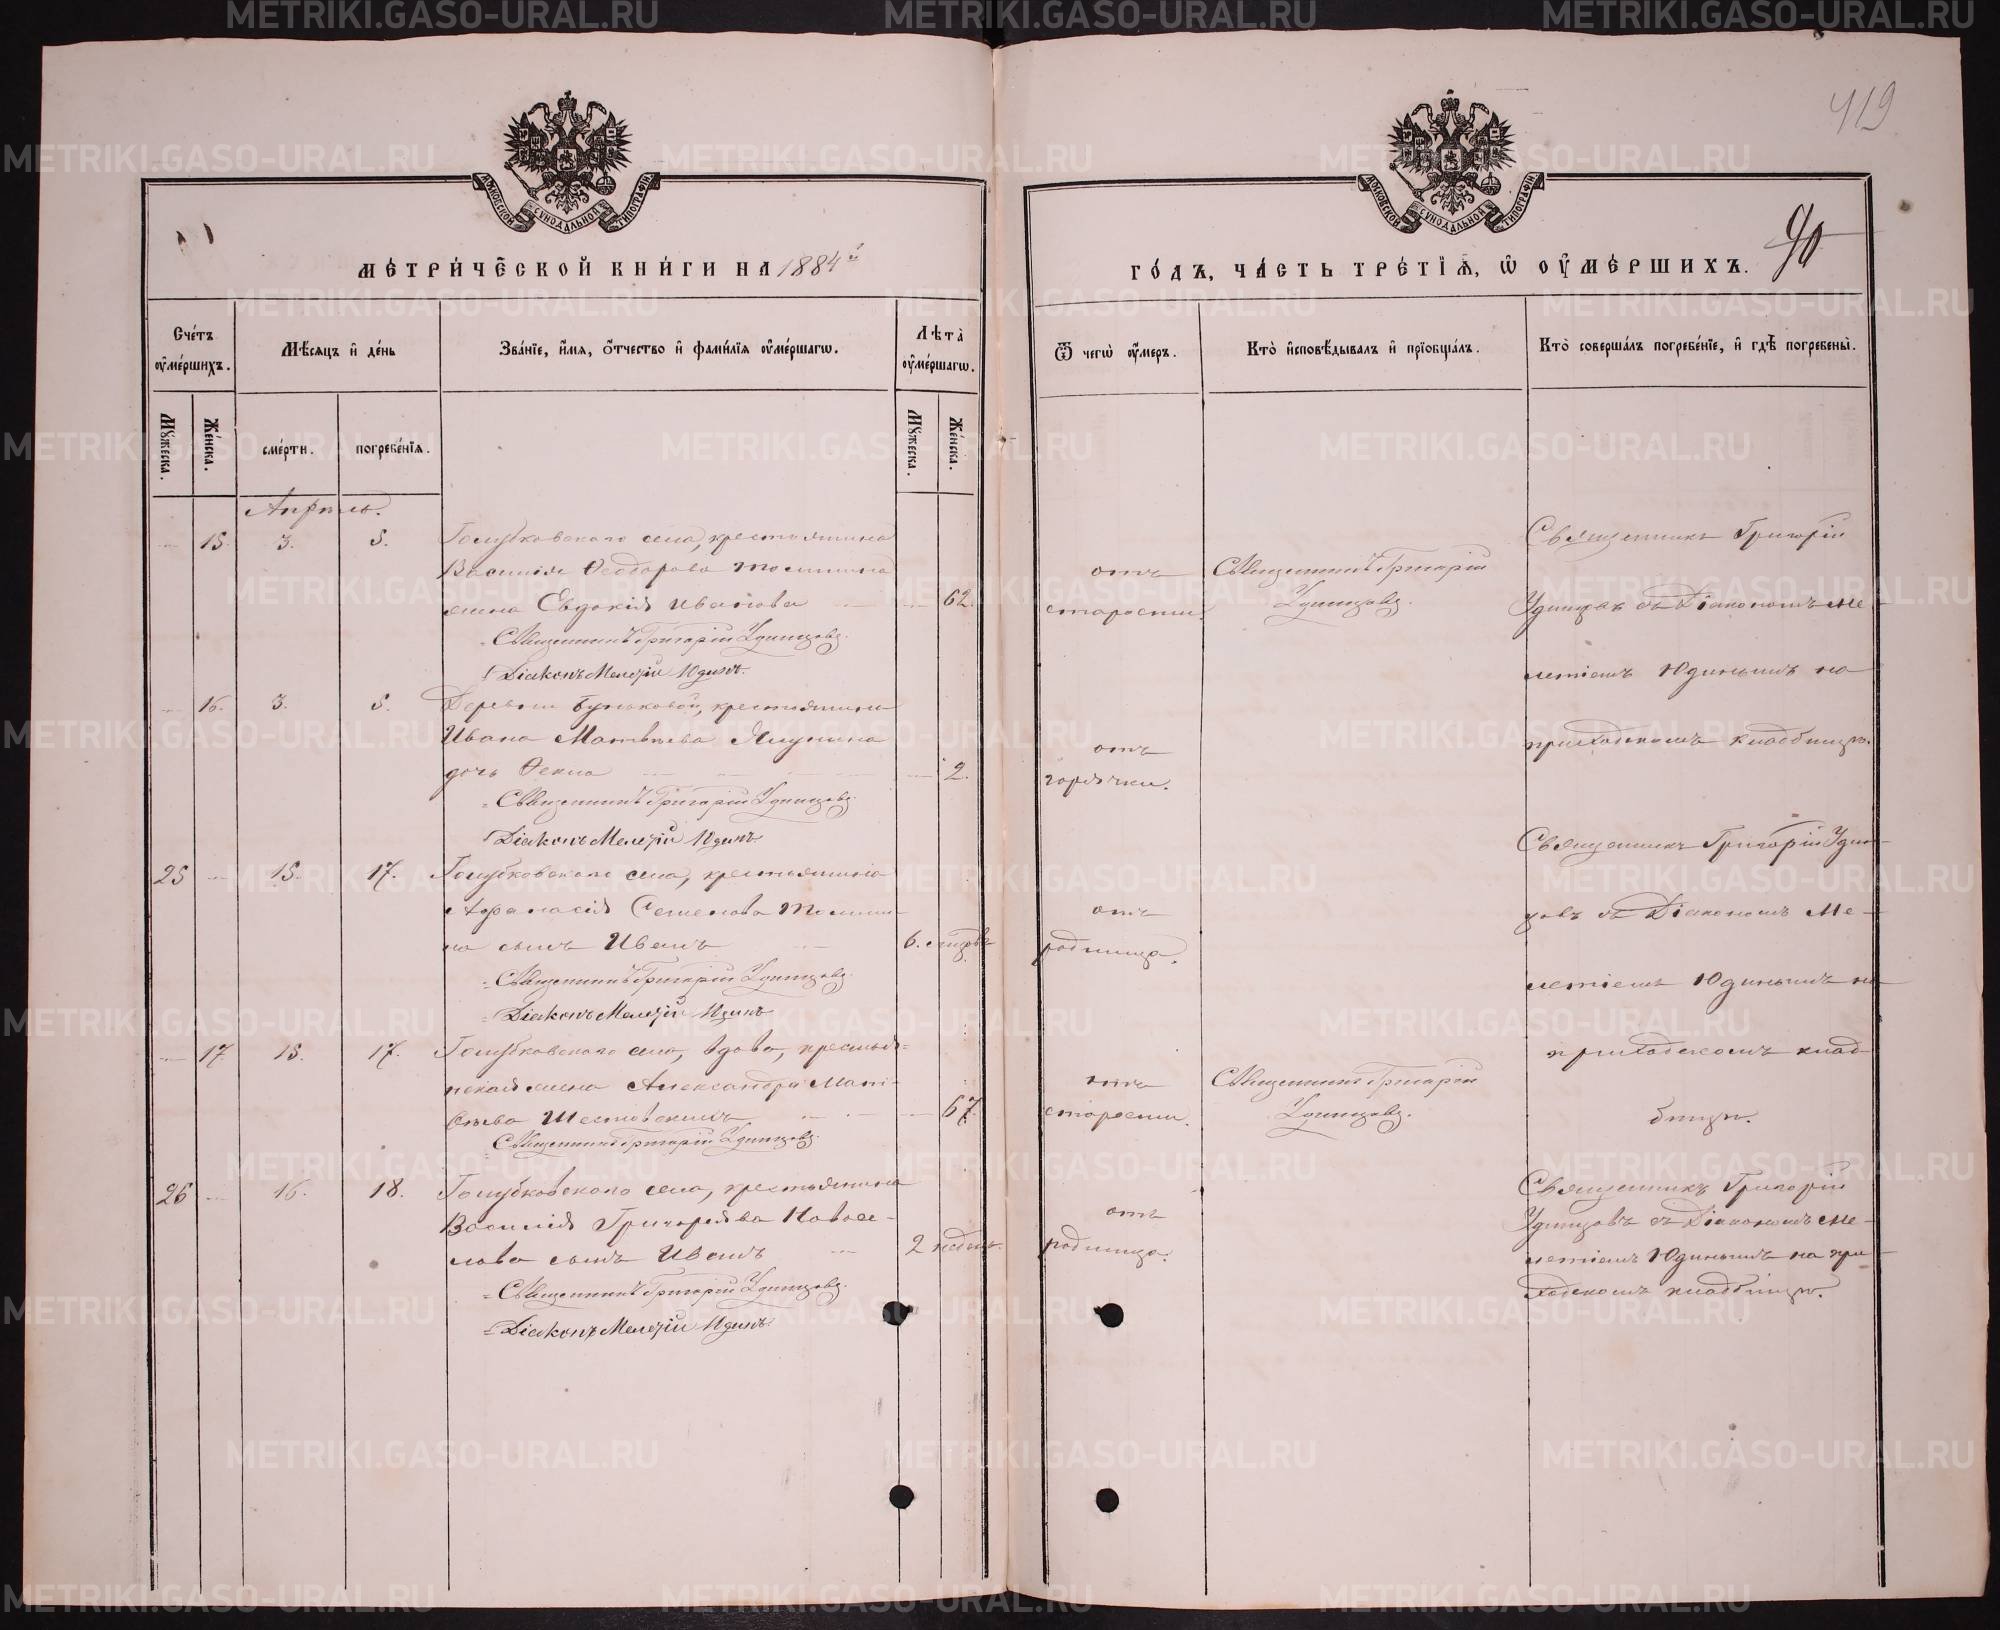 419
90
МОСКОВСКОЙ СУНОДАЛЬНОЙ ТИПОГРАФІИ
МОСКОВСКОЙ СУНОДАЛЬНОЙ ТИПОГРАФІИ
МЕТРИЧЕСКОЙ КНИГИ НА 1884й
ГОДЪ, ЧАСТЬ ТРЕТІѦ, Ѡ ОУМЕРШИХЪ.
Счетъ оумершихъ.
Мѣсяцъ и день
Званіе, имя, отчество и фамилія оумершагѡ.
Лѣта оумершагѡ.
Ѿ чегѡ оумеръ.
Кто исповѣдывалъ и пріобщалъ.
Кто совершалъ погребеніе, и гдѣ погребены.
Мужеска.
Женска.
смерти.
погребенія.
Мужеска.
Женска.
Апрѣль.
15. 3. 5. Голубковскаго села, крестьянина
Василія Ѳеодорова Томилина
жена Евдокія Иванова 62.
Священникъ Григорій Удинцовъ.
Діаконъ Мелетій Юдинъ.
отъ
старости.
Священникъ Григорій
Удинцовъ.
Священникъ Григорій
Удинцовъ съ Діакономъ Ме-
летіемъ Юдинымъ на
приходскомъ кладбищѣ.
16. 3. 5. Деревни Буньковой, крестьянина
Ивана Матвѣева Якунина
дочь Ѳекла 2.
Священникъ Григорій Удинцовъ.
Діаконъ Мелетій Юдинъ.
отъ
горячки.
25 15. 17. Голубковскаго села, крестьянина
Аѳанасія Семенова Томили-
на сынъ Иванъ 6. мѣсяцовъ
Священникъ Григорій Удинцовъ.
Діаконъ Мелетій Юдинъ
отъ
родимца.
Священникъ Григорій Удин-
цовъ съ Діакономъ Ме-
летіемъ Юдинымъ на
приходскомъ клад-
бищѣ.
17. 15. 17. Голубковскаго села, вдова, крестья-
нская жена Александра Мат-
вѣева Шестовскихъ 67.
Священникъ Григорій Удинцовъ.
отъ
старости.
Священникъ Григорій
Удинцовъ.
26 16. 18. Голубковскаго села, крестьянина
Василія Григорьева Новосе-
лова сынъ Иванъ 2 недѣль.
Священникъ Григорій Удинцовъ.
Діаконъ Мелетій Юдинъ.
отъ
родимца.
Священникъ Григорій
Удинцовъ съ Діакономъ Ме-
летіемъ Юдинымъ на при-
ходскомъ кладбищѣ.
METRIKI.GASO-URAL.RU